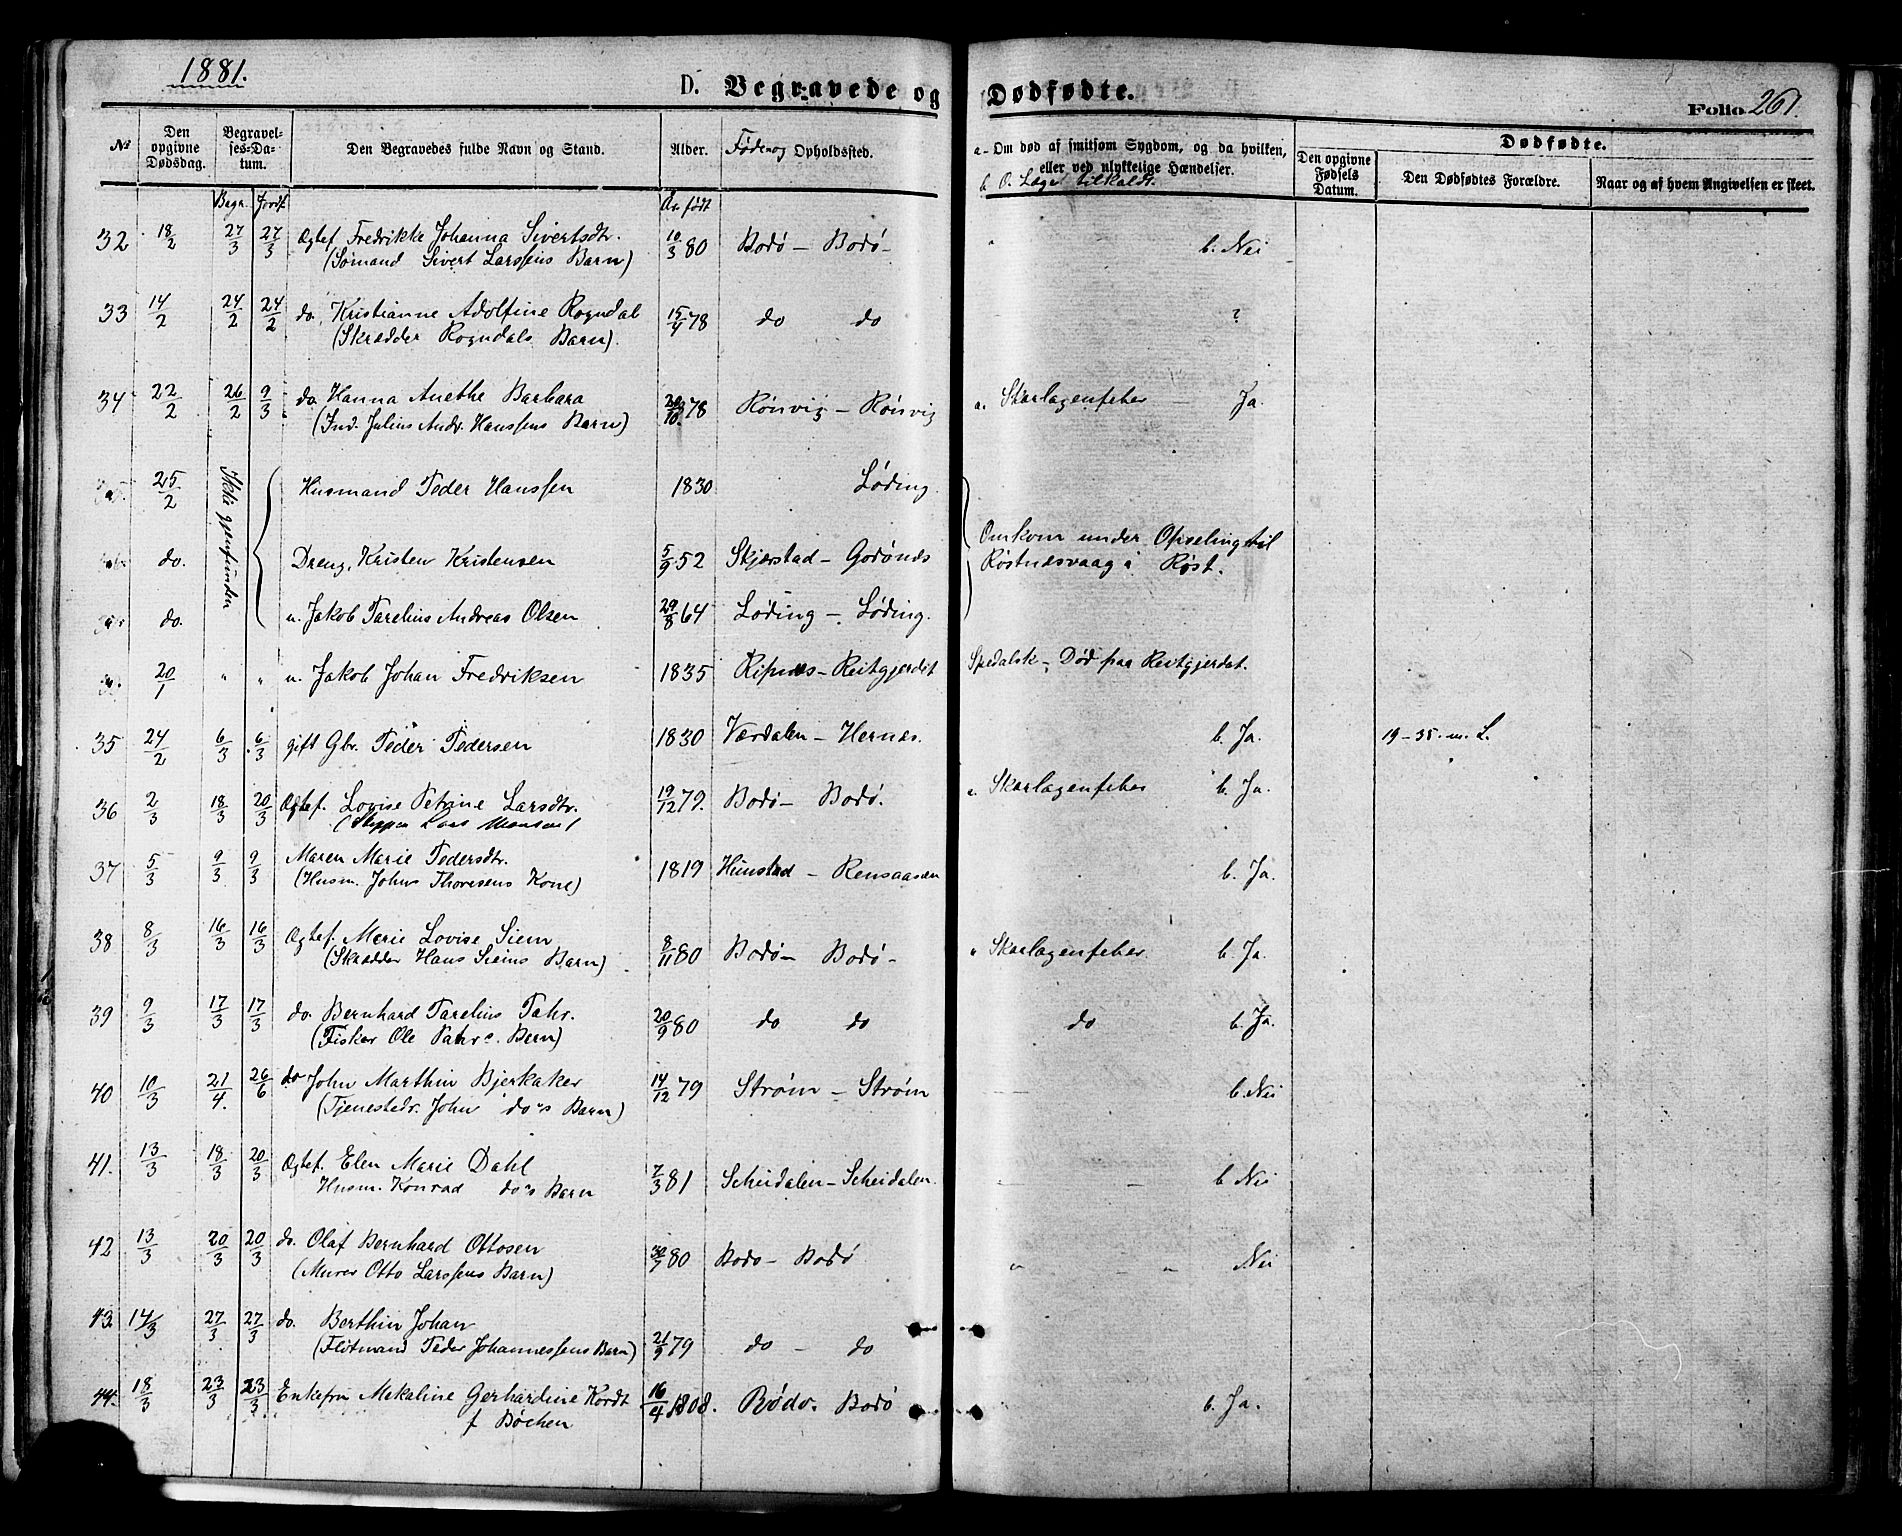 1881.
D. Begravede og Dødfødte.
Folio 261.
No
Den opgivne Dødsdag.
Begravelses-Datum.
Den Begravedes fulde Navn og Stand.
Alder.
Føde- og Opholdssted.
a- Om død af smitsom Sygdom, og da hvilken, eller ved ulykkelige Hændelser.
b. O. Læge tilkaldt.
Dødfødte.
Den opgivne Fødsels Datum.
Den Dødfødtes Forældre.
Naar og af hvem Angivelsen er skeet.
Begr. Jordf. Aar født
32 18/2 27/3 27/3 Ægtef. Fredrikke Johanna Sivertsdtr. 10/3 80 Bodø - Bodø- " b. Nei
(Sømand Sivert Larssens Barn)
33 14/2 24/2 24/2 do. Kristianne Adolfine Rogndal 15/4 78 do do ?
(Skrædder Rogndals Barn).
34 22/2 26/2 9/3 do. Hanna Anethe Barbara 78 Rønvig - Rønvig a. Skarlagensfeber Ja.
(Ind. Julius Andr. Hanssens Barn)
25/2 Ikke gjenfunden Husmand Peder Hanssen 1830 Løding
do. Dreng, Kristen Kristensen 5/9 52 Skjerstad - Godønes Omkom under Opseling til
Røstnesvaag i Røst.
do. u. Jakob Parelius Andreas Olsen 29/8 64 Løding - Løding.
20/1 " " u. Jakob Johan Fredriksen 1835 Ripnes - Reitgjerdet Spedalsk - Død paa Reitgjerdet.
35 24/2 6/3 6/3 gift Gbr. Peder Pedersen 1830 Værdalen - Hernes. b. Ja. 19-35. m. L.
36 2/3 18/3 20/3 Ægtef. Lovise Petrine Larsdtr. 19/12 79. Bodø - Bodø. a. Skarlagensfeber b. Ja.
(Skipper Lars
37 5/3 9/3 9/3 Maren Marie Pedersdtr. 1819 Hunstad - Rensaasen b. Ja.
(Husm. Johns Thoresens Kone)
38 8/3 16/3 16/3 Ægtef. Marie Lovise Siem 8/11 80 Bodø - Bodø - " Skarlagensfeber b. Ja.
(Skrædder Hans Siems Barn)
39 9/3 17/3 17/3 do. Bernhard Parelius Pahr. 20/9 80 do do do b. Ja.
(Fisker Ole Pahr's Barn)
40 10/3 21/4. 26/6 do John Marthin Bjerkaker 14/12 79 Strøm - Strøm b. Nei
(Tjenestedr. John do's Barn)
41. 13/3 18/3 20/3 Ægtef. Elen Marie Dahl 7/3 81 Scheidalen - Scheidalen. b. Nei
Husm. Konrad do's Barn
42 13/3 20/3 20/3 do. Olaf Bernhard Ottosen 80 Bodø - Bodø " " Nei
(Murer Otto Larssens Barn)
43 14/3 27/3 27/3 do. Berthin Johan
(Fløtmand Peder Johannessens Barn) 21/9 79 do - do
44. 18/3 23/3 23/3 Enkefru Mekaline Gerhardine Kordt 16/4 1808. Rødø. Bodø b. Ja.
f. Bøchen